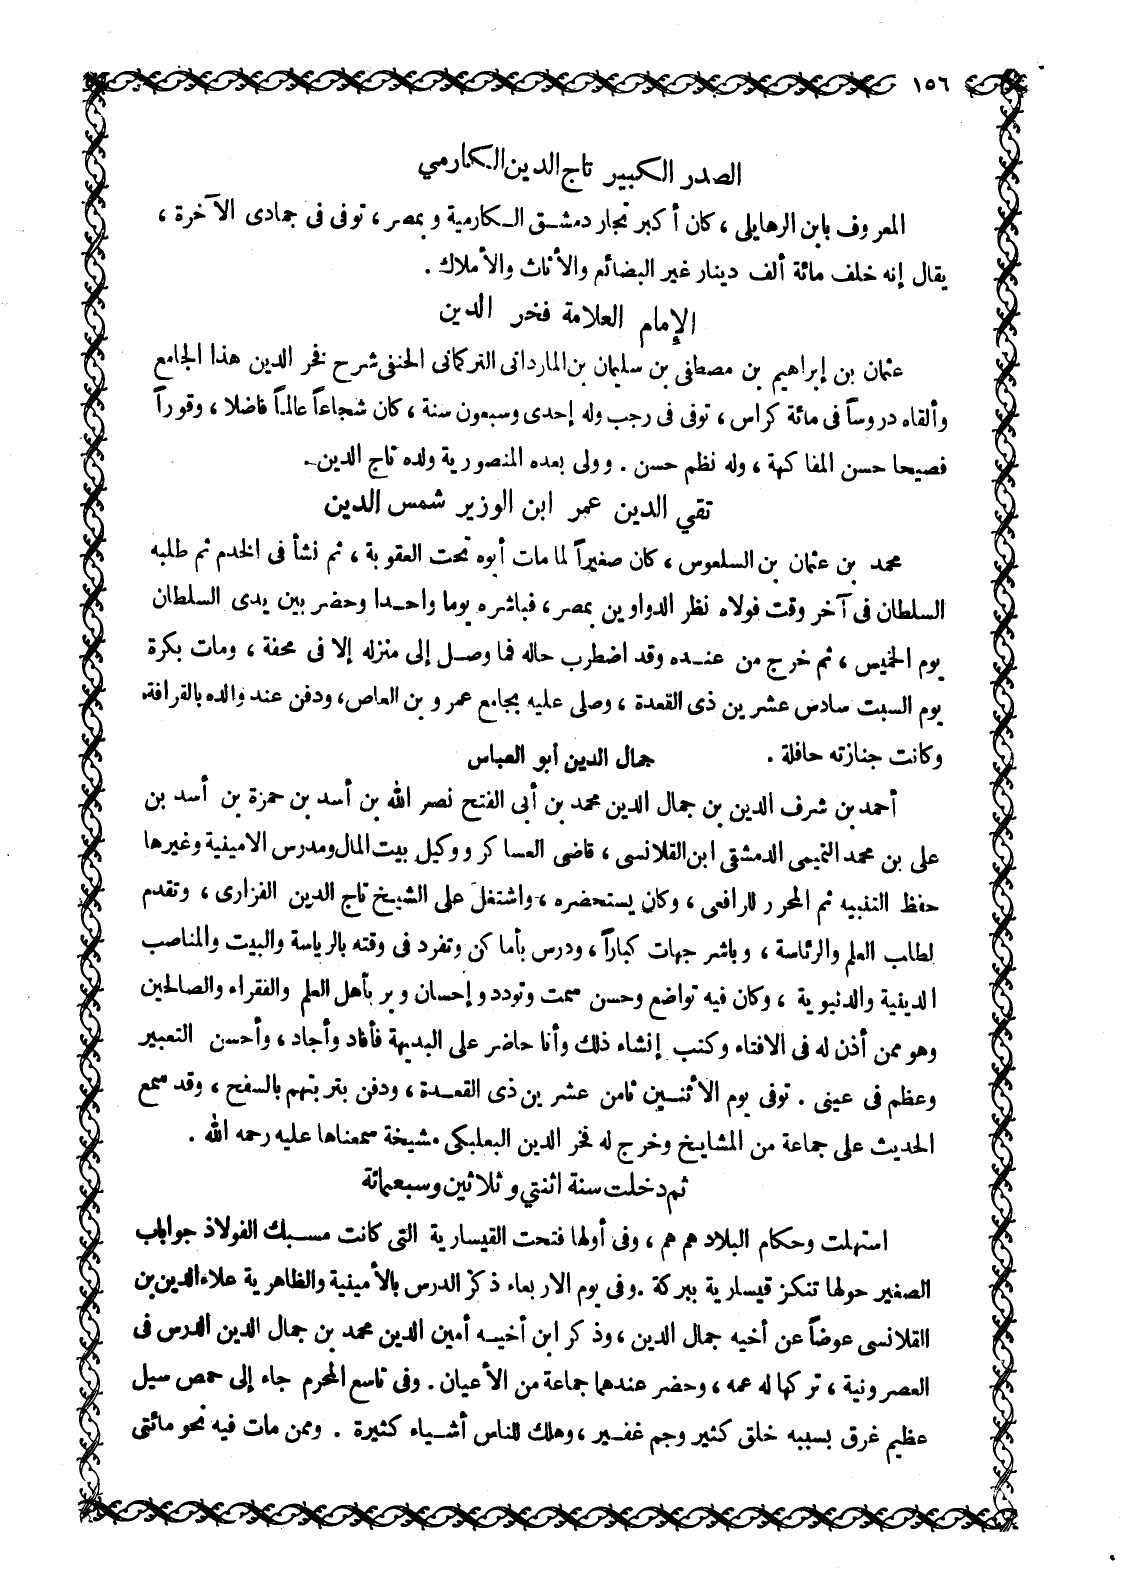 ١٥٦
الصدر الكبير تاج الدين الكارمي
المعروف بابن الرهايلى ، كان أكبر تجار دمشق الكارمية وبمصر ، توفى فى جمادى الآخرة ،
يقال إنه خلف مائة ألف دينار غير البضائع والأثاث والأملاك .
الإمام العلامة فخر الدين
عثمان بن إبراهيم بن مصطفى بن سليمان بن الماردانى التركمانى الحنفى شرح فخر الدين هذا الجامع
وألقاه دروساً فى مائة كراس ، توفى فى رجب وله إحدى وسبعون سنة ، كان شجاعاً عالماً فاضلا ، وقوراً
فصيحا حسن المفاكهة ، وله نظم حسن . وولى بعده المنصورية ولده تاج الدين .
تقي الدين عمر ابن الوزير شمس الدين
محمد بن عثمان بن السلعوس ، كان صغيراً لما مات أبوه تحت العقوبة ، ثم نشأ فى الخدم ثم طلبه
السلطان فى آخر وقت فولاه نظر الدواوين بمصر ، فباشره يوما واحدا وحضر بين يدى السلطان
يوم الخميس ، ثم خرج من عنده وقد اضطرب حاله فما وصل إلى منزله إلا فى محفة ، ومات بكرة
يوم السبت سادس عشرين ذى القعدة ، وصلى عليه بجامع عمرو بن العاص ، ودفن عند والده بالقرافة ،
وكانت جنازته حافلة .
جمال الدين أبو العباس
أحمد بن شرف الدين بن جمال الدين محمد بن أبى الفتح نصر الله بن أسد بن حمزة بن أسد بن
على بن محمد التميمى الدمشقى ابن القلانسى ، قاضى العساكر ووكيل بيت المال ومدرس الامينية وغيرها
حفظ التنبيه ثم المحرر للرافعى ، وكان يستحضره ، واشتغل على الشيخ تاج الدين الفزارى ، وتقدم
لطلب العلم والرئاسة ، وباشر جهات كباراً ، ودرس بأماكن وتفرد فى وقته بالرياسة والبيت والمناصب
الدينية والدنيوية ، وكان فيه تواضع وحسن سمت وتودد وإحسان وبر بأهل العلم والفقراء والصالحين
وهو ممن أذن له فى الافتاء وكتب إنشاء ذلك وأنا حاضر على البديهة فأفاد وأجاد ، وأحسن التعبير
وعظم فى عينى . توفى يوم الأثنين ثامن عشرين ذى القعدة ، ودفن بتربتهم بالسفح ، وقد سمع
الحديث على جماعة من المشايخ وخرج له فخر الدين البعلبكى مشيخة سمعناها عليه رحمه الله .
ثم دخلت سنة اثنتي وثلاثين وسبعمائة
استهلت وحكام البلاد هم هم ، وفى أولها فتحت القيسارية التى كانت مسبك الفولاذ جوا باب
الصغير حولها تنكز قيسارية ببركة . وفى يوم الاربعاء ذكر الدرس بالأمينية والظاهرية علاء الدين بن
القلانسى عوضاً عن أخيه جمال الدين ، وذكر ابن أخيه أمين الدين محمد بن جمال الدين الدرس فى
العصرونية ، تركها له عمه ، وحضر عندهما جماعة من الأعيان . وفى تاسع المحرم جاء إلى حمص سيل
عظيم غرق بسببه خلق كثير وجم غفير ، وهلك للناس أشياء كثيرة . وممن مات فيه نحو مائتى